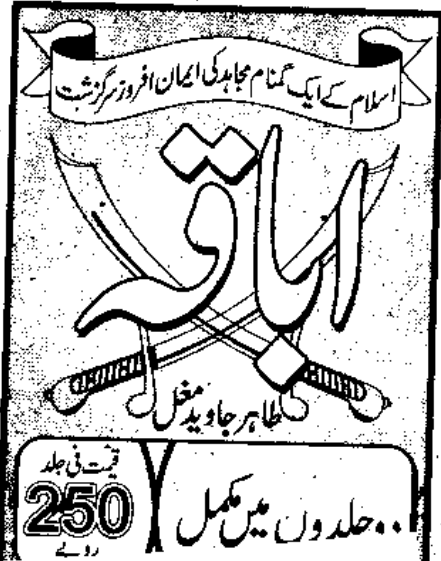 اسلام کے ایک گمنام مجاہد کی ایمان افروز سرگزشت
اباقہ
طاہر جاوید مغل
قیمت فی جلد
250
روپے
جلدوں میں مکمل